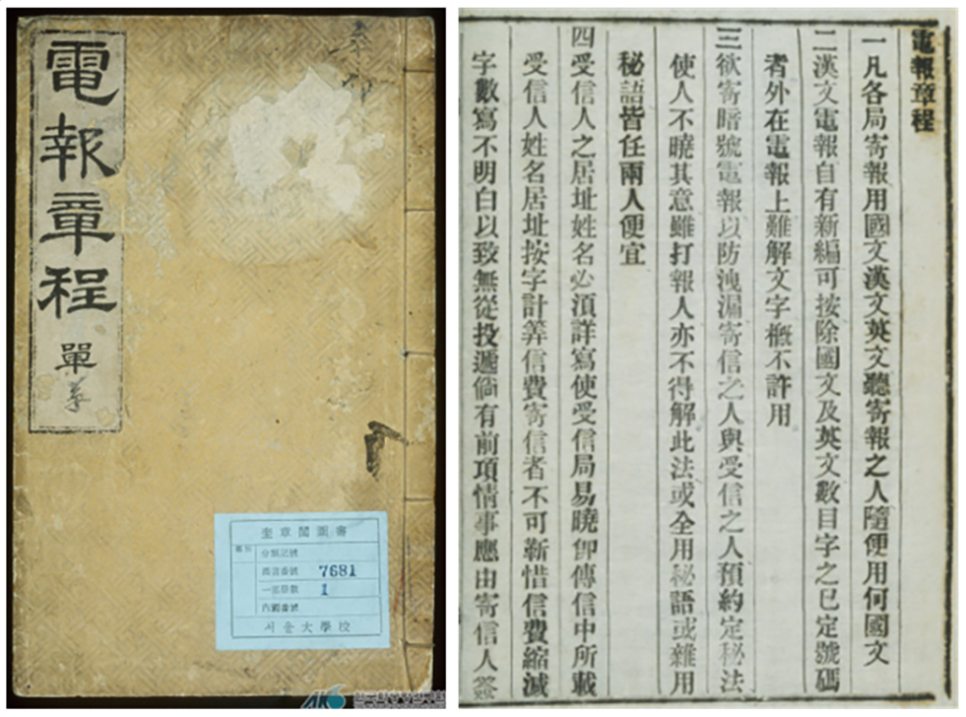 電報章程
單
奎章閣圖書
分類記號
圖書番號 7681
一部冊數 1
內國番號
서울大學校
電報章程
一凡各局寄報用國文漢文英文聽寄報之人隨便用何國文
二漢文電報自有新編可按除國文及英文數目字之已定號碼
者外在電報上難解文字概不許用
三欲寄暗號電報以防洩漏寄信之人與受信之人預約定秘法
使人不曉其意雖打報人亦不得解此法或全用秘語或雜用
秘語皆任兩人便宜
四受信人之居址姓名必須詳寫使受信局易曉卽傳信中所載
受信人姓名居址按字計筭信費寄信者不可靳惜信費縮減
字數寫不明白以致無從投遞倘有前項情事應由寄信人簽